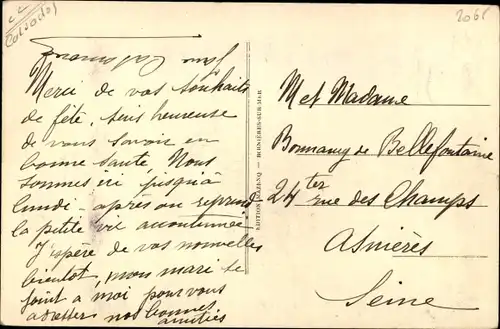 Calvados
2065
Merci de vos souhaits
de fête, suis heureuse
de vous savoir en
bonne santé, Nous
sommes ici jusqu'à
lundi - après on reprend
la petite vie accoutumée
J'espère de vos nouvelles
bientôt, mon mari se
joint à moi pour vous
adresser nos bonnes
amitiés
BERNIÈRES-SUR-MER
M et Madame
de Bellefontaine
24 ter rue des Champs
Asnières
Seine